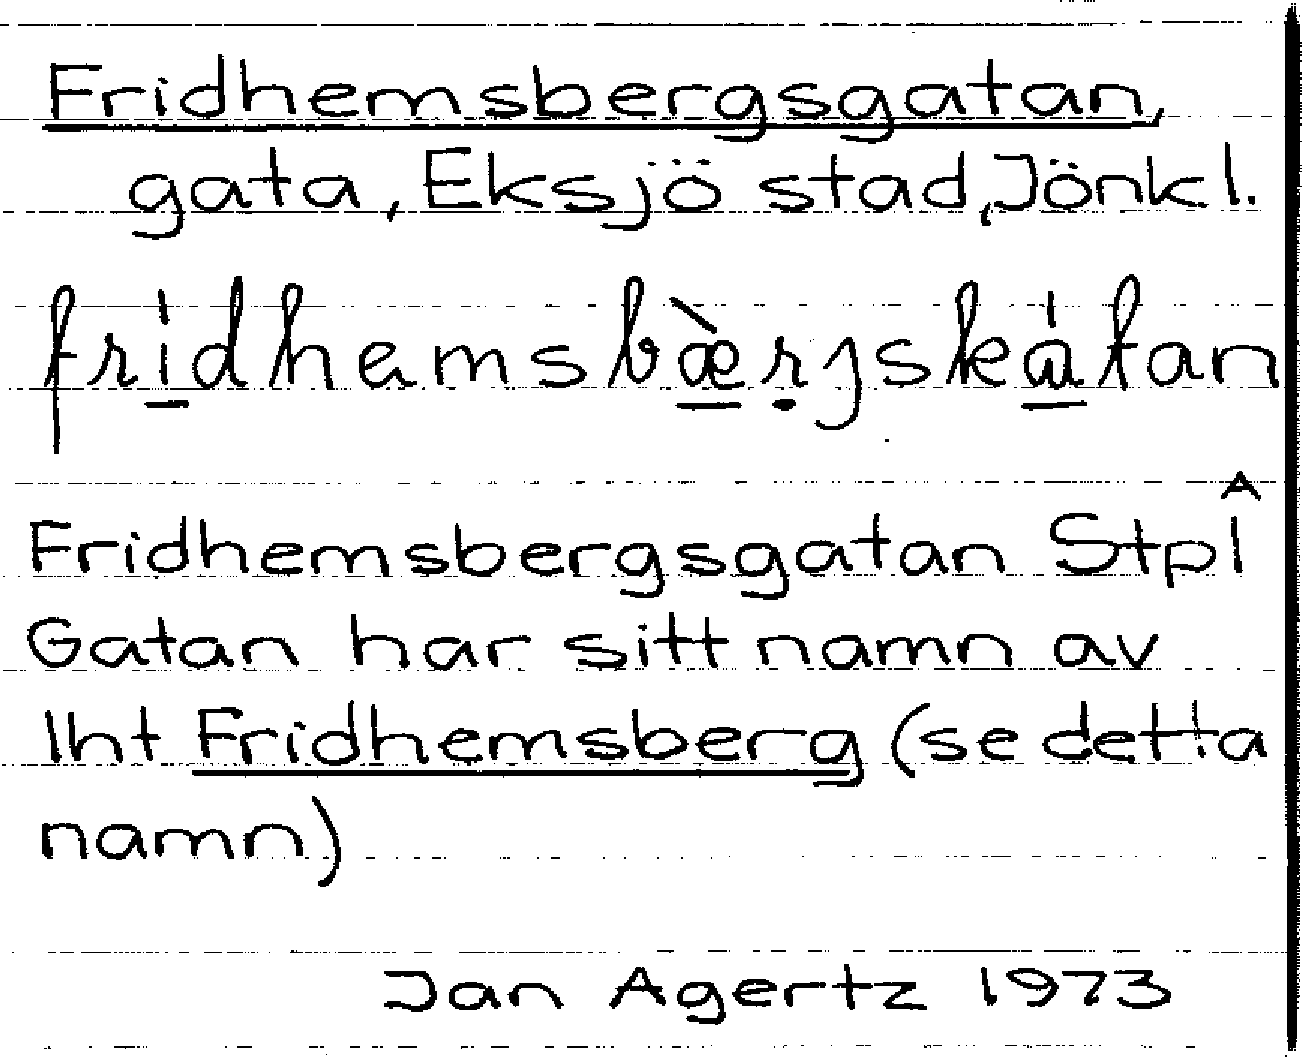 Fridhemsbergsgatan,
gata, Eksjö stad, Jönkl.
fridhemsbæ̀rjskátan
Fridhemsbergsgatan Stpl
Gatan har sitt namn av
lht Fridhemsberg (se detta
namn)
Jan Agertz 1973